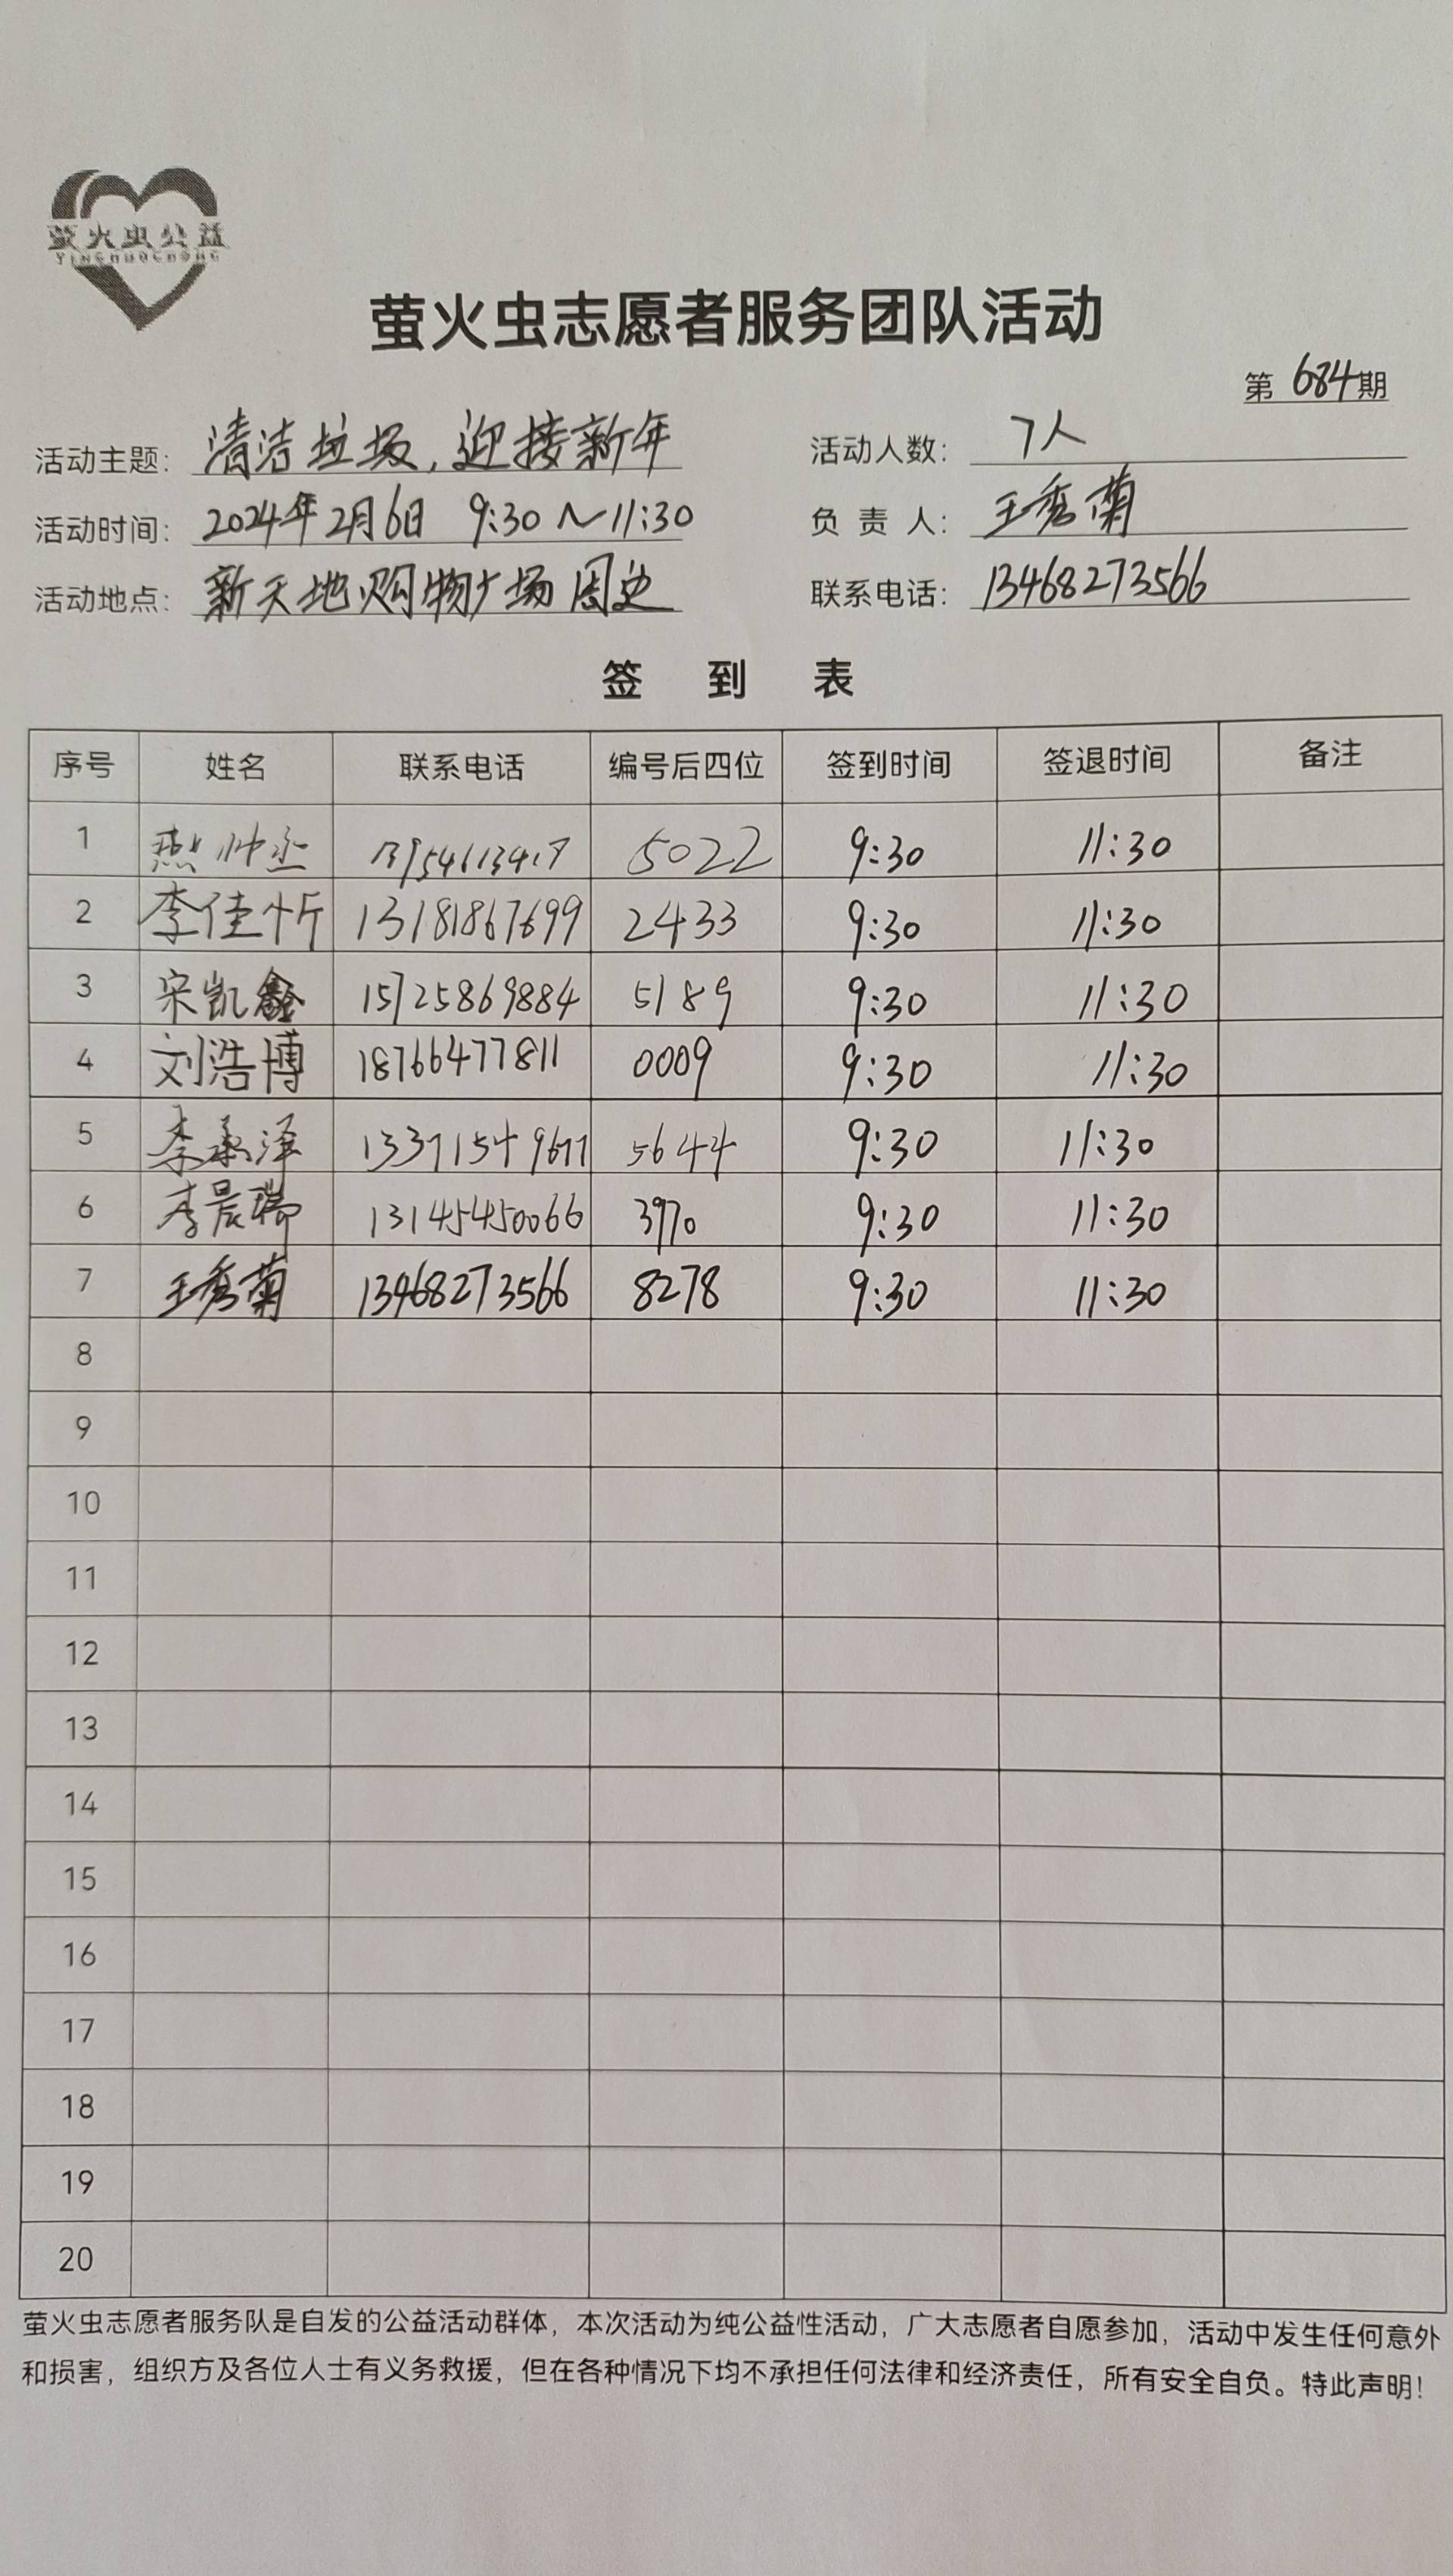 萤火虫公益
YINGHUOCHONG
萤火虫志愿者服务团队活动
第 684 期
活动主题：清洁垃圾，迎接新年 活动人数：7人
活动时间：2024年2月6日 9:30～11:30 负责人：王秀菊
活动地点：新天地购物广场周边 联系电话：13468273566
签到表
序号 姓名 联系电话 编号后四位 签到时间 签退时间 备注
1 5022 9:30 11:30
2 李佳忻 13181867699 2433 9:30 11:30
3 宋凯鑫 15725869884 5189 9:30 11:30
4 刘浩博 18766477811 0009 9:30 11:30
5 李承泽 5644 9:30 11:30
6 李晨瑞 13145450066 3970 9:30 11:30
7 王秀菊 13468273566 8278 9:30 11:30
8
9
10
11
12
13
14
15
16
17
18
19
20
萤火虫志愿者服务队是自发的公益活动群体，本次活动为纯公益性活动，广大志愿者自愿参加，活动中发生任何意外
和损害，组织方及各位人士有义务救援，但在各种情况下均不承担任何法律和经济责任，所有安全自负。特此声明！